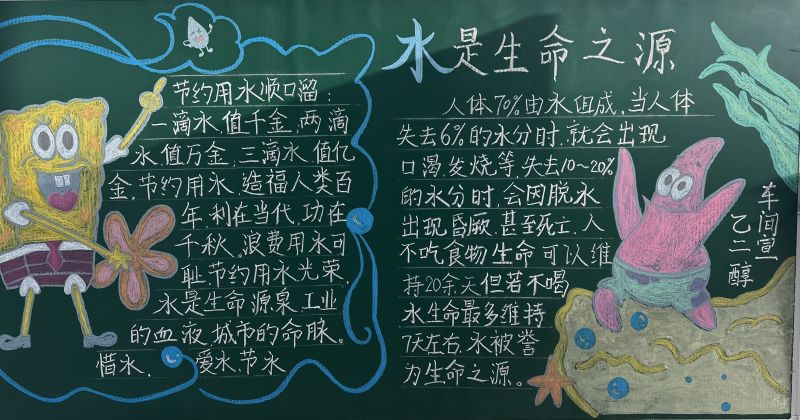 节约用水顺口溜：
一滴水，值千金，两滴
水，值万金，三滴水，值亿
金，节约用水，造福人类百
年，利在当代，功在
千秋。浪费用水可
耻，节约用水光荣，
水是生命源泉，工业
的血液，城市的命脉。
惜水，爱水，节水
水是生命之源
人体70%由水组成，当人体
失去6%的水分时，就会出现
口渴，发烧等，失去10~20%
的水分时，会因脱水
出现昏厥，甚至死亡，人
不吃食物生命可以维
持20余天但若不喝
水生命最多维持
7天左右，水被誉
为生命之源。
乙二醇
车间宣